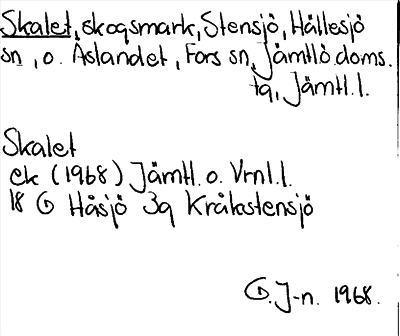 Skalet, skogsmark, Stensjö, Hällesjö
sn, o. Åslandet, Fors sn, Jämtlö doms.
tg, Jämtl.l.
Skalet
ek (1968) Jämtl. o. Vrnl.l.
18 G Håsjö 3g Kråkstensjö
G. J-n. 1968.